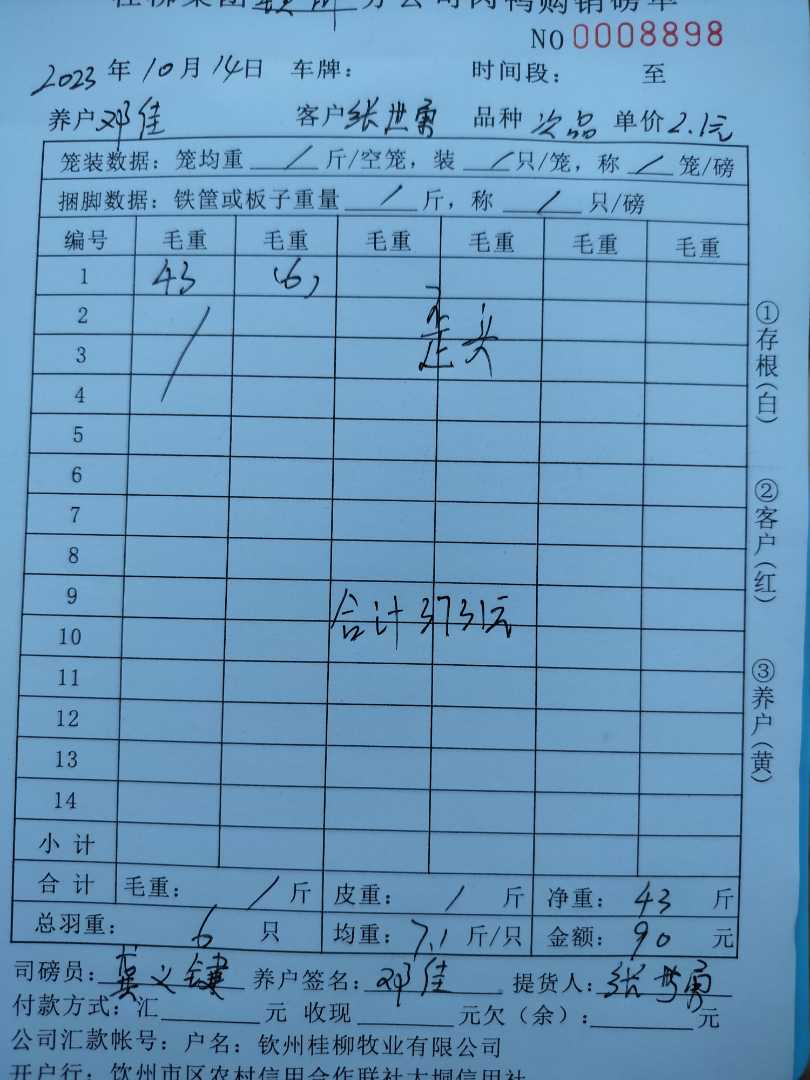 桂柳集团钦州分公司肉鸭购销磅单
NO 0008898
2023年10月14日 车牌: 时间段: 至
养户邓佳 客户张世勇 品种次品 单价2.1元
笼装数据:笼均重/斤/空笼,装/只/笼,称/笼/磅
捆脚数据:铁筐或板子重量/斤,称/只/磅
编号 毛重 毛重 毛重 毛重 毛重 毛重
1 43 (6)
2
3 歪头
4
5
6
7
8
9 合计3731元
10
11
12
13
14
小计
合计 毛重:/斤 皮重:/斤 净重:43斤
总羽重:6只 均重:7.1斤/只 金额:90元
司磅员:莫义键 养户签名:邓佳 提货人:张世勇
付款方式:汇 元 收现 元欠(余): 元
公司汇款帐号:户名:钦州桂柳牧业有限公司
开户行:钦州市区农村信用合作联社大垌信用社
①存根(白)
②客户(红)
③养户(黄)